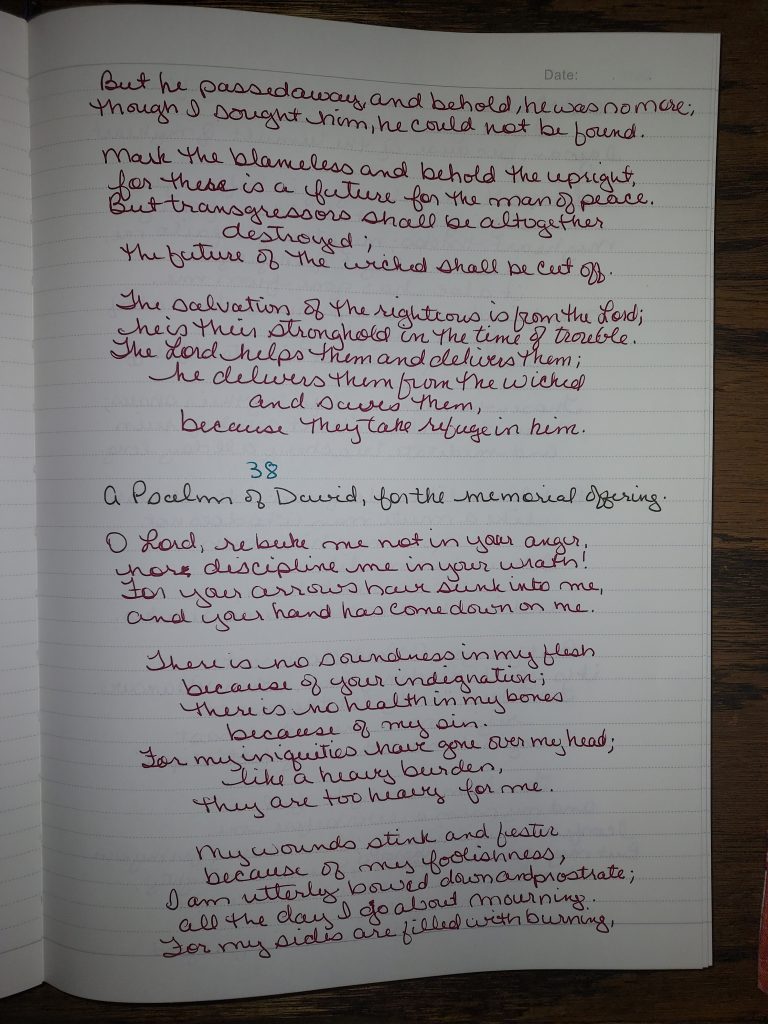 Date:
But he passed away, and behold, he was no more;
though I sought him, he could not be found.
Mark the blameless and behold the upright,
for there is a future for the man of peace.
But transgressors shall be altogether
destroyed;
the future of the wicked shall be cut off.
The salvation of the righteous is from the Lord;
he is their stronghold in the time of trouble.
The Lord helps them and delivers them;
he delivers them from the wicked
and saves them,
because they take refuge in him.
38
A Psalm of David, for the memorial offering.
O Lord, rebuke me not in your anger,
nor discipline me in your wrath!
For your arrows have sunk into me,
and your hand has come down on me.
There is no soundness in my flesh
because of your indignation;
there is no health in my bones
because of my sin.
For my iniquities have gone over my head;
like a heavy burden,
they are too heavy for me.
My wounds stink and fester
because of my foolishness,
I am utterly bowed down and prostrate;
all the day I go about mourning.
For my sides are filled with burning,